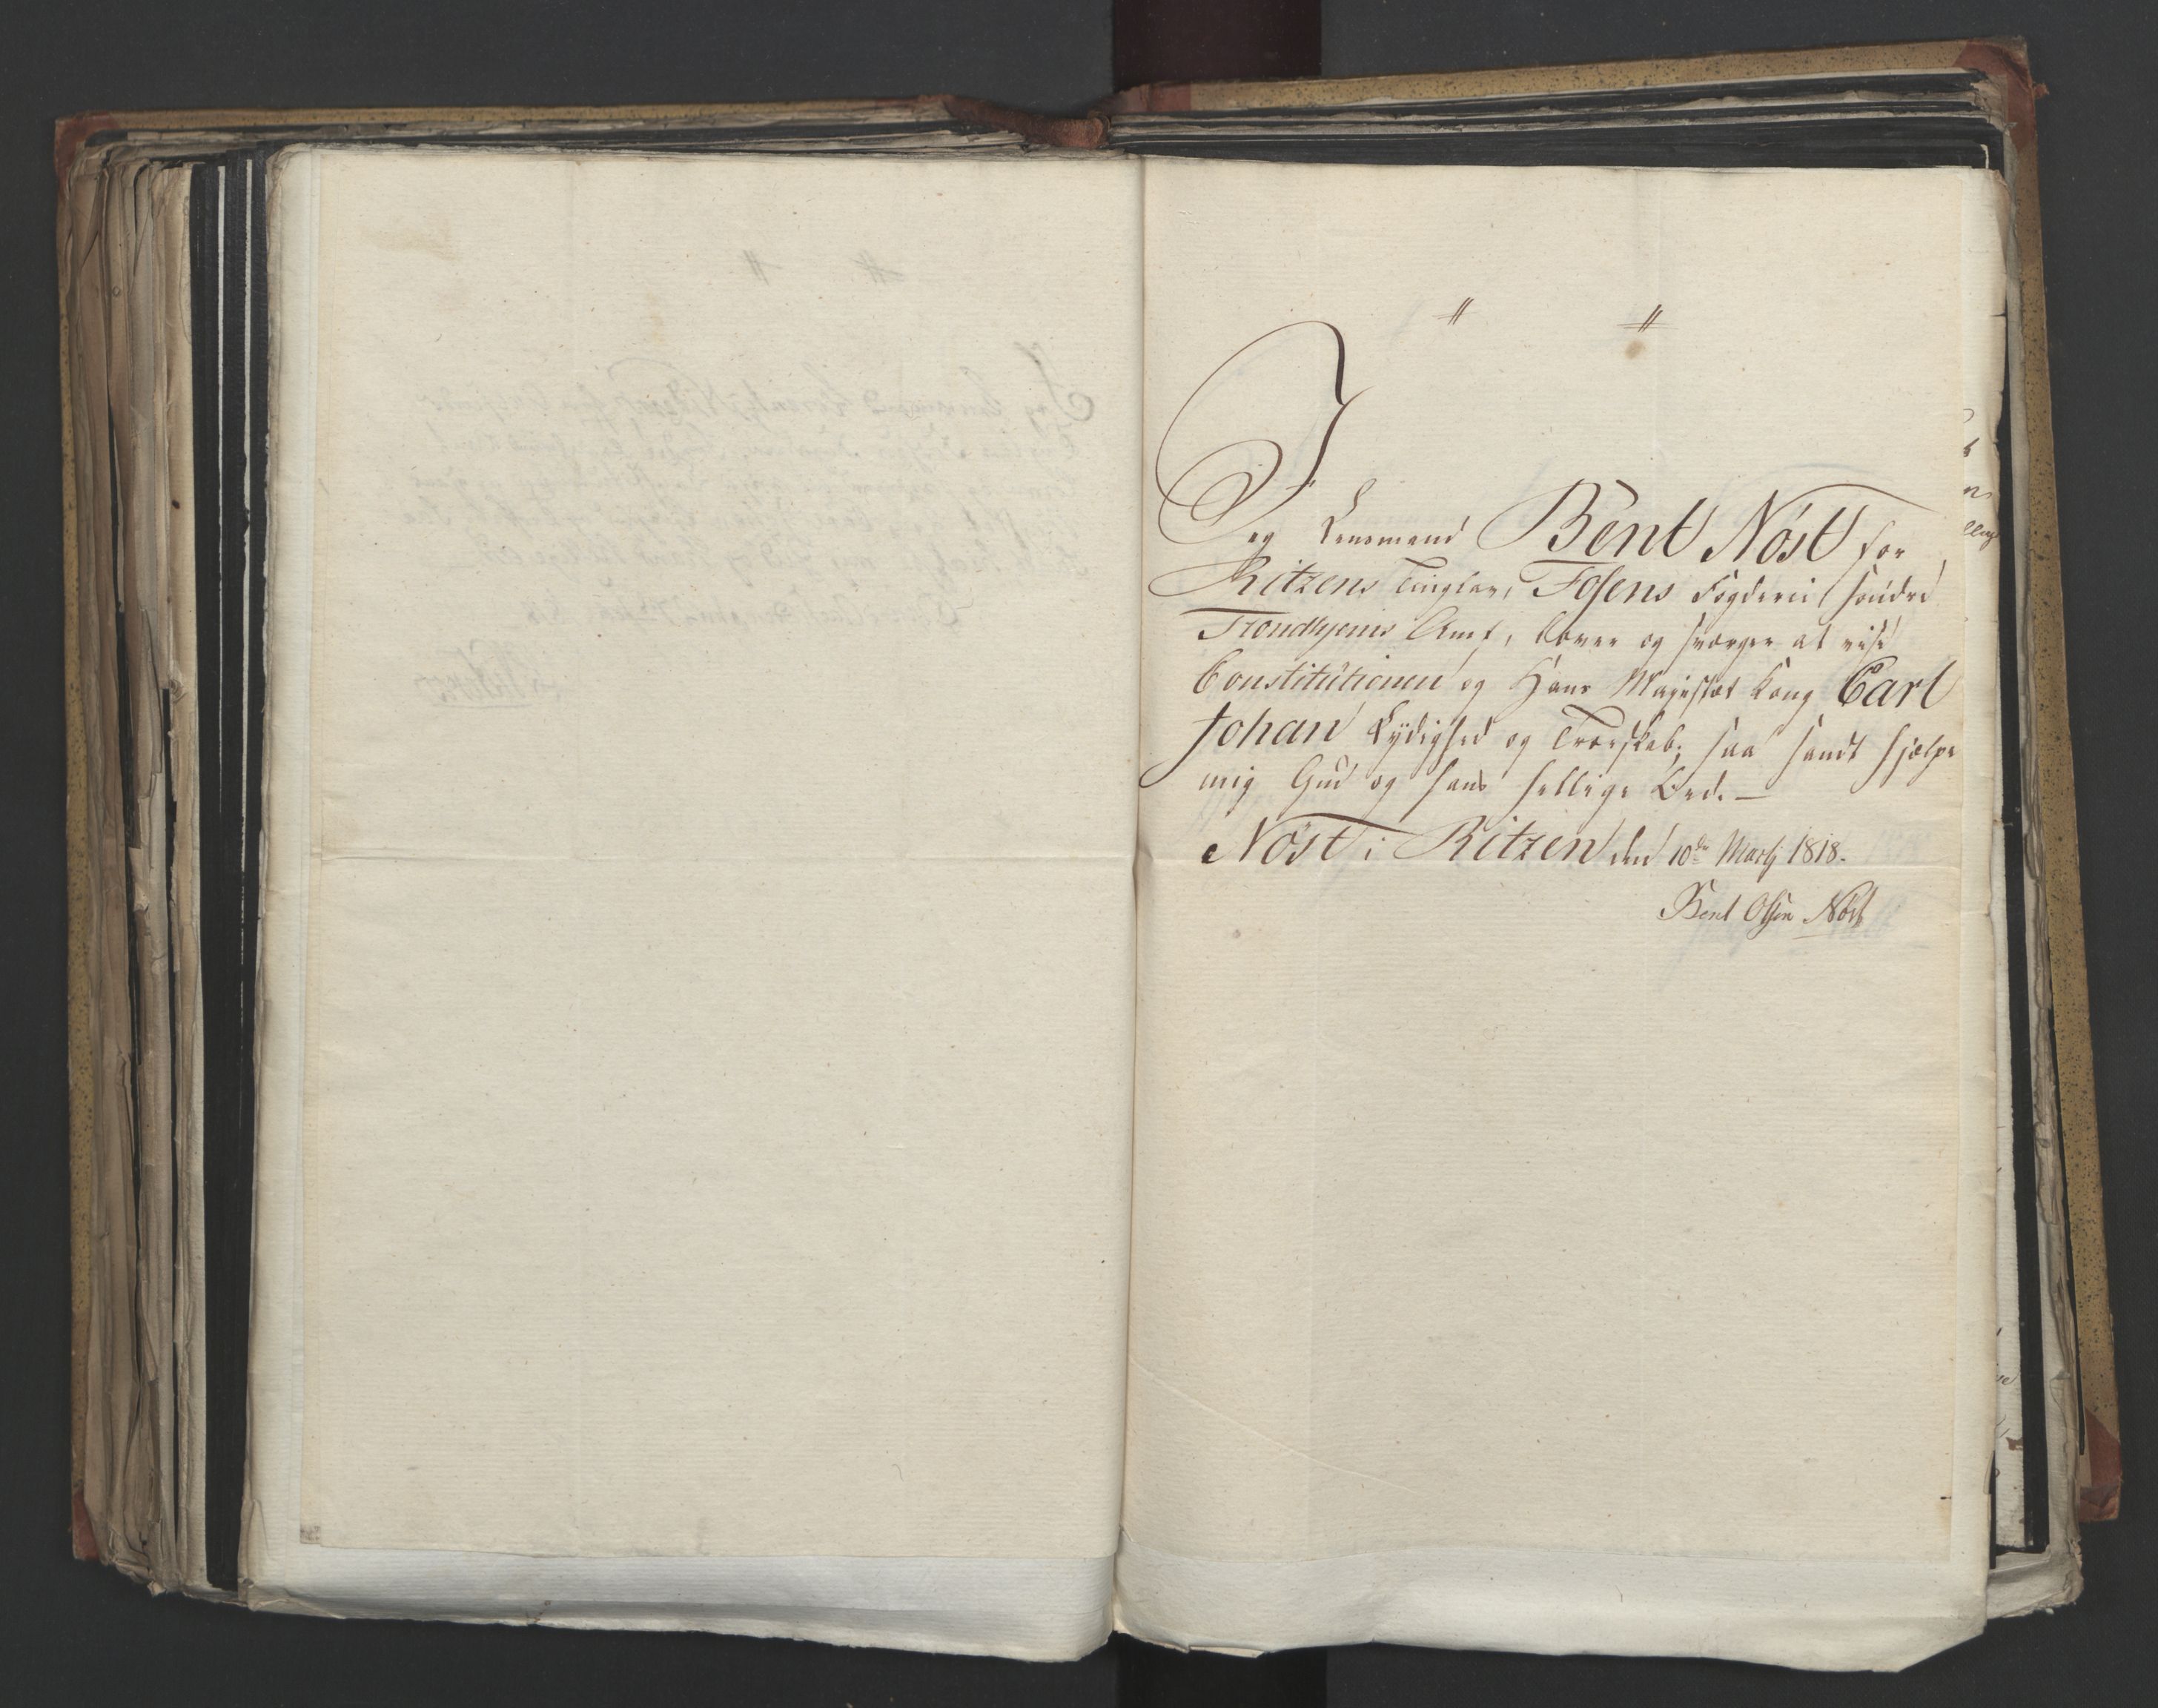 Jeg Lensmand Bent Nöst for
Ritzens Tinglav, Fosens Fogderie Söndre
Trondhjems Amt, lover og sværger at vise
Constitutionen og Hans Majestæt Kong Carl
Johan Lydighed og Troeskab; saa sandt hjælpe
mig Gud og hans hellige Ord. —
Nöst i Ritzen den 10de Martj 1818.
Bent Olsen Nöst